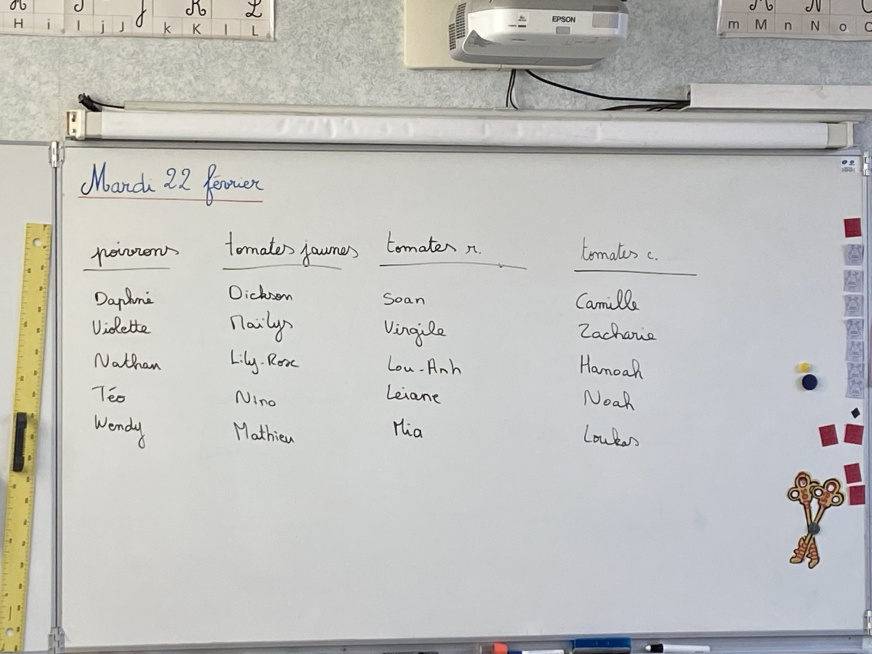 H i I j J k K l L
EPSON
m M n N o O
Mardi 22 février
poivrons tomates jaunes tomates r. tomates c.
Daphné Dickson Soan Camille
Violette Maïlys Virgile Zacharie
Nathan Lily-Rose Lou-Anh Hanoah
Téo Nino Leiane Noah
Wendy Mathieu Mia Loukas